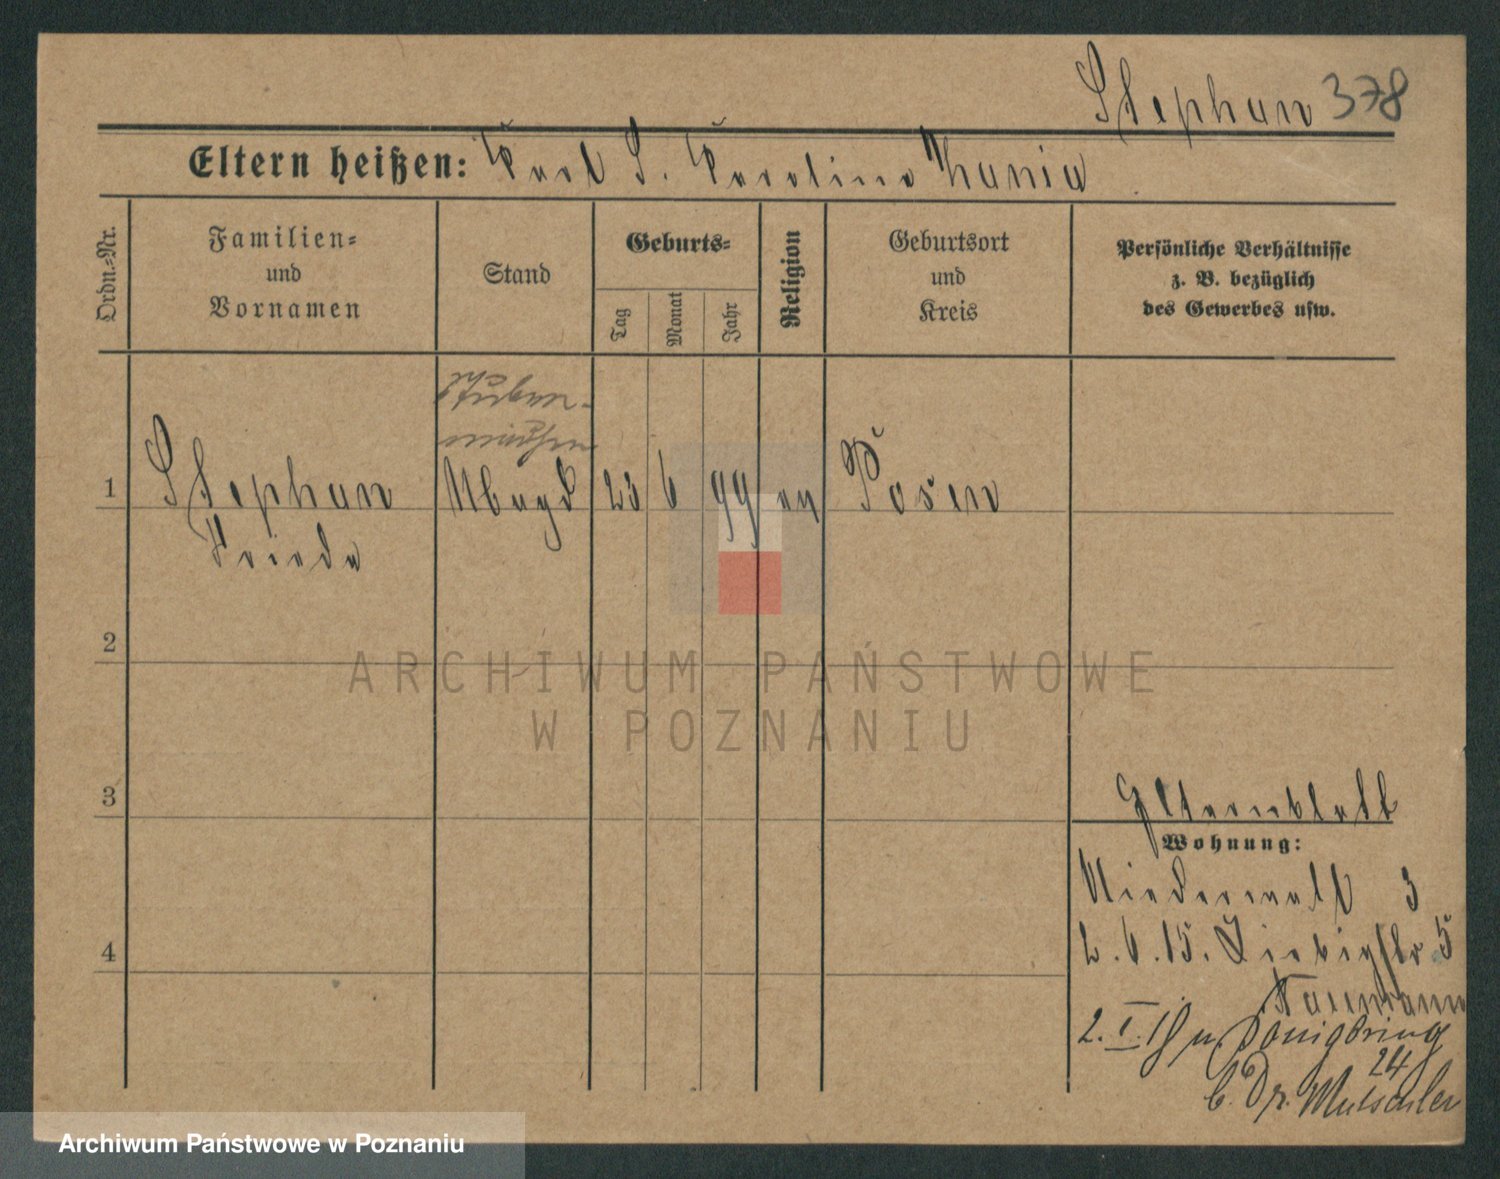 Stephan 378
Eltern heißen: Karl S. Karoline Kania
Ordn.-Nr.
Familien-
und
Vornamen
Stand
Geburts-
Tag
Monat
Jahr
Religion
Geburtsort
und
Kreis
Persönliche Verhältnisse
z. B. bezüglich
des Gewerbes usw.
Stuben-
mädchen
1 Stephan Magd 23 6 99 ev Posen
Frieda
2
3
4
ARCHIWUM PAŃSTWOWE
W POZNANIU
Elternblatt
Wohnung:
Niederwall 3
2.6.15. Liebigstr 5
Naumann
2. I. 18 n. Königsring
24
b. Dr. Mutschler
Archiwum Państwowe w Poznaniu